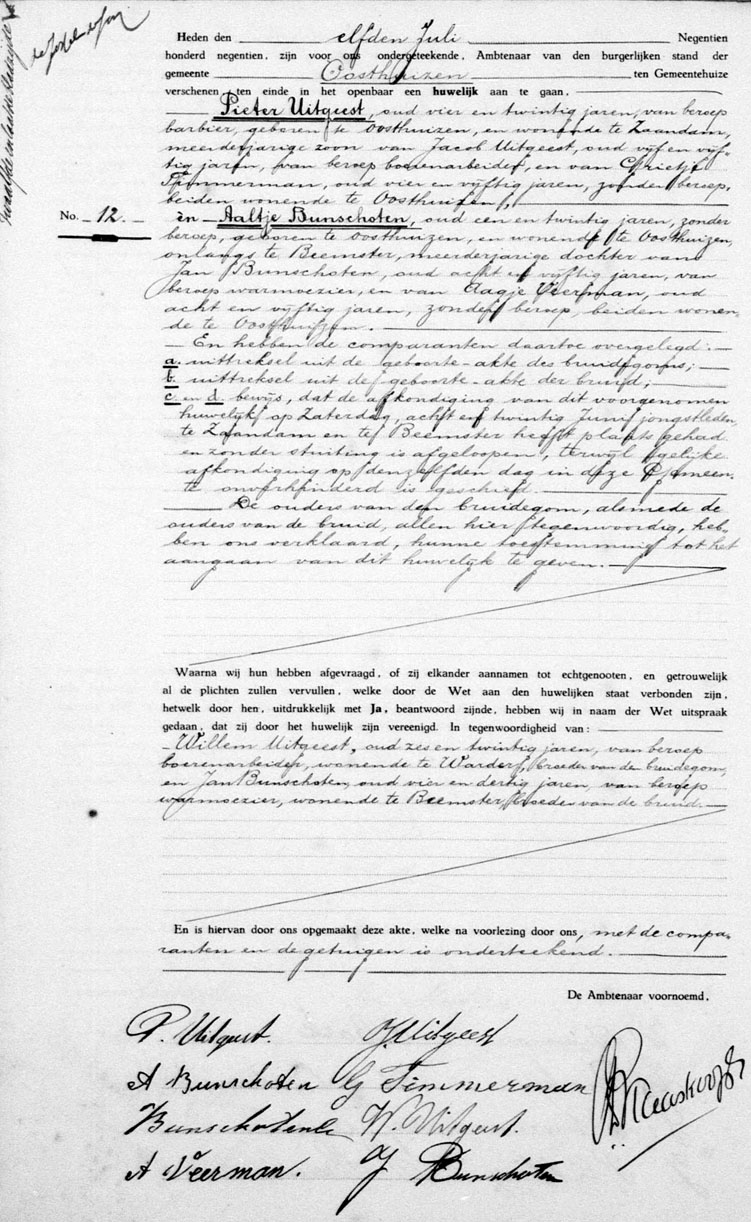 Heden den elfden Juli Negentien
honderd negentien, zijn voor ons ondergeteekende, Ambtenaar van den burgerlijken stand der
gemeente Oosthuizen ten Gemeentehuize
verschenen ten einde in het openbaar een huwelijk aan te gaan,
Pieter Uitgeest, oud vier en twintig jaren, van beroep
barbier, geboren te Oosthuizen, en wonende te Zaandam,
meerderjarige zoon van Jacob Uitgeest, oud vijf en vijf-
tig jaren, van beroep boerenarbeider, en van Grietje
Timmerman, oud vier en vijftig jaren, zonder beroep,
beiden wonende te Oosthuizen,
No. 12.
èn Aaltje Bunschoten, oud een en twintig jaren, zonder
beroep, geboren te Oosthuizen, en wonende te Oosthuizen,
onlangs te Beemster, meerderjarige dochter van
Jan Bunschoten, oud acht en vijftig jaren, van
beroep warmoezier, en van Aagje Veerman, oud
acht en vijftig jaren, zonder beroep, beiden wonen-
de te Oosthuizen.
En hebben de comparanten daartoe overgelegd:
a. uittreksel uit de geboorte-akte des bruidegoms;
b. uittreksel uit de geboorte-akte der bruid;
c en d. bewijs, dat de afkondiging van dit voorgenomen
huwelijk op Zaterdag, acht en twintig Juni jongstleden,
te Zaandam en te Beemster heeft plaats gehad
en zonder stuiting is afgeloopen, terwijl gelijke
afkondiging op denzelfden dag in deze Gemeen-
te onverhinderd is geschied.
De ouders van den bruidegom, alsmede de
ouders van de bruid, allen hier tegenwoordig, heb-
ben ons verklaard, hunne toestemming tot het
aangaan van dit huwelijk te geven.
Waarna wij hun hebben afgevraagd, of zij elkander aannamen tot echtgenooten, en getrouwelijk
al de plichten zullen vervullen, welke door de Wet aan den huwelijken staat verbonden zijn,
hetwelk door hen, uitdrukkelijk met Ja, beantwoord zijnde, hebben wij in naam der Wet uitspraak
gedaan, dat zij door het huwelijk zijn vereenigd. In tegenwoordigheid van:
Willem Uitgeest, oud zes en twintig jaren, van beroep
boerenarbeider, wonende te Warder, broeder van de bruidegom,
en Jan Bunschoten, oud vier en dertig jaren, van beroep
warmoezier, wonende te Beemster, broeder van de bruid.
En is hiervan door ons opgemaakt deze akte, welke na voorlezing door ons, met de compa-
ranten en de getuigen is onderteekend.
De Ambtenaar voornoemd,
P. Uitgeest. J Uitgeest
A Bunschoten G Timmerman
Bunschoten W. Uitgeest.
A Veerman. J Bunschoten